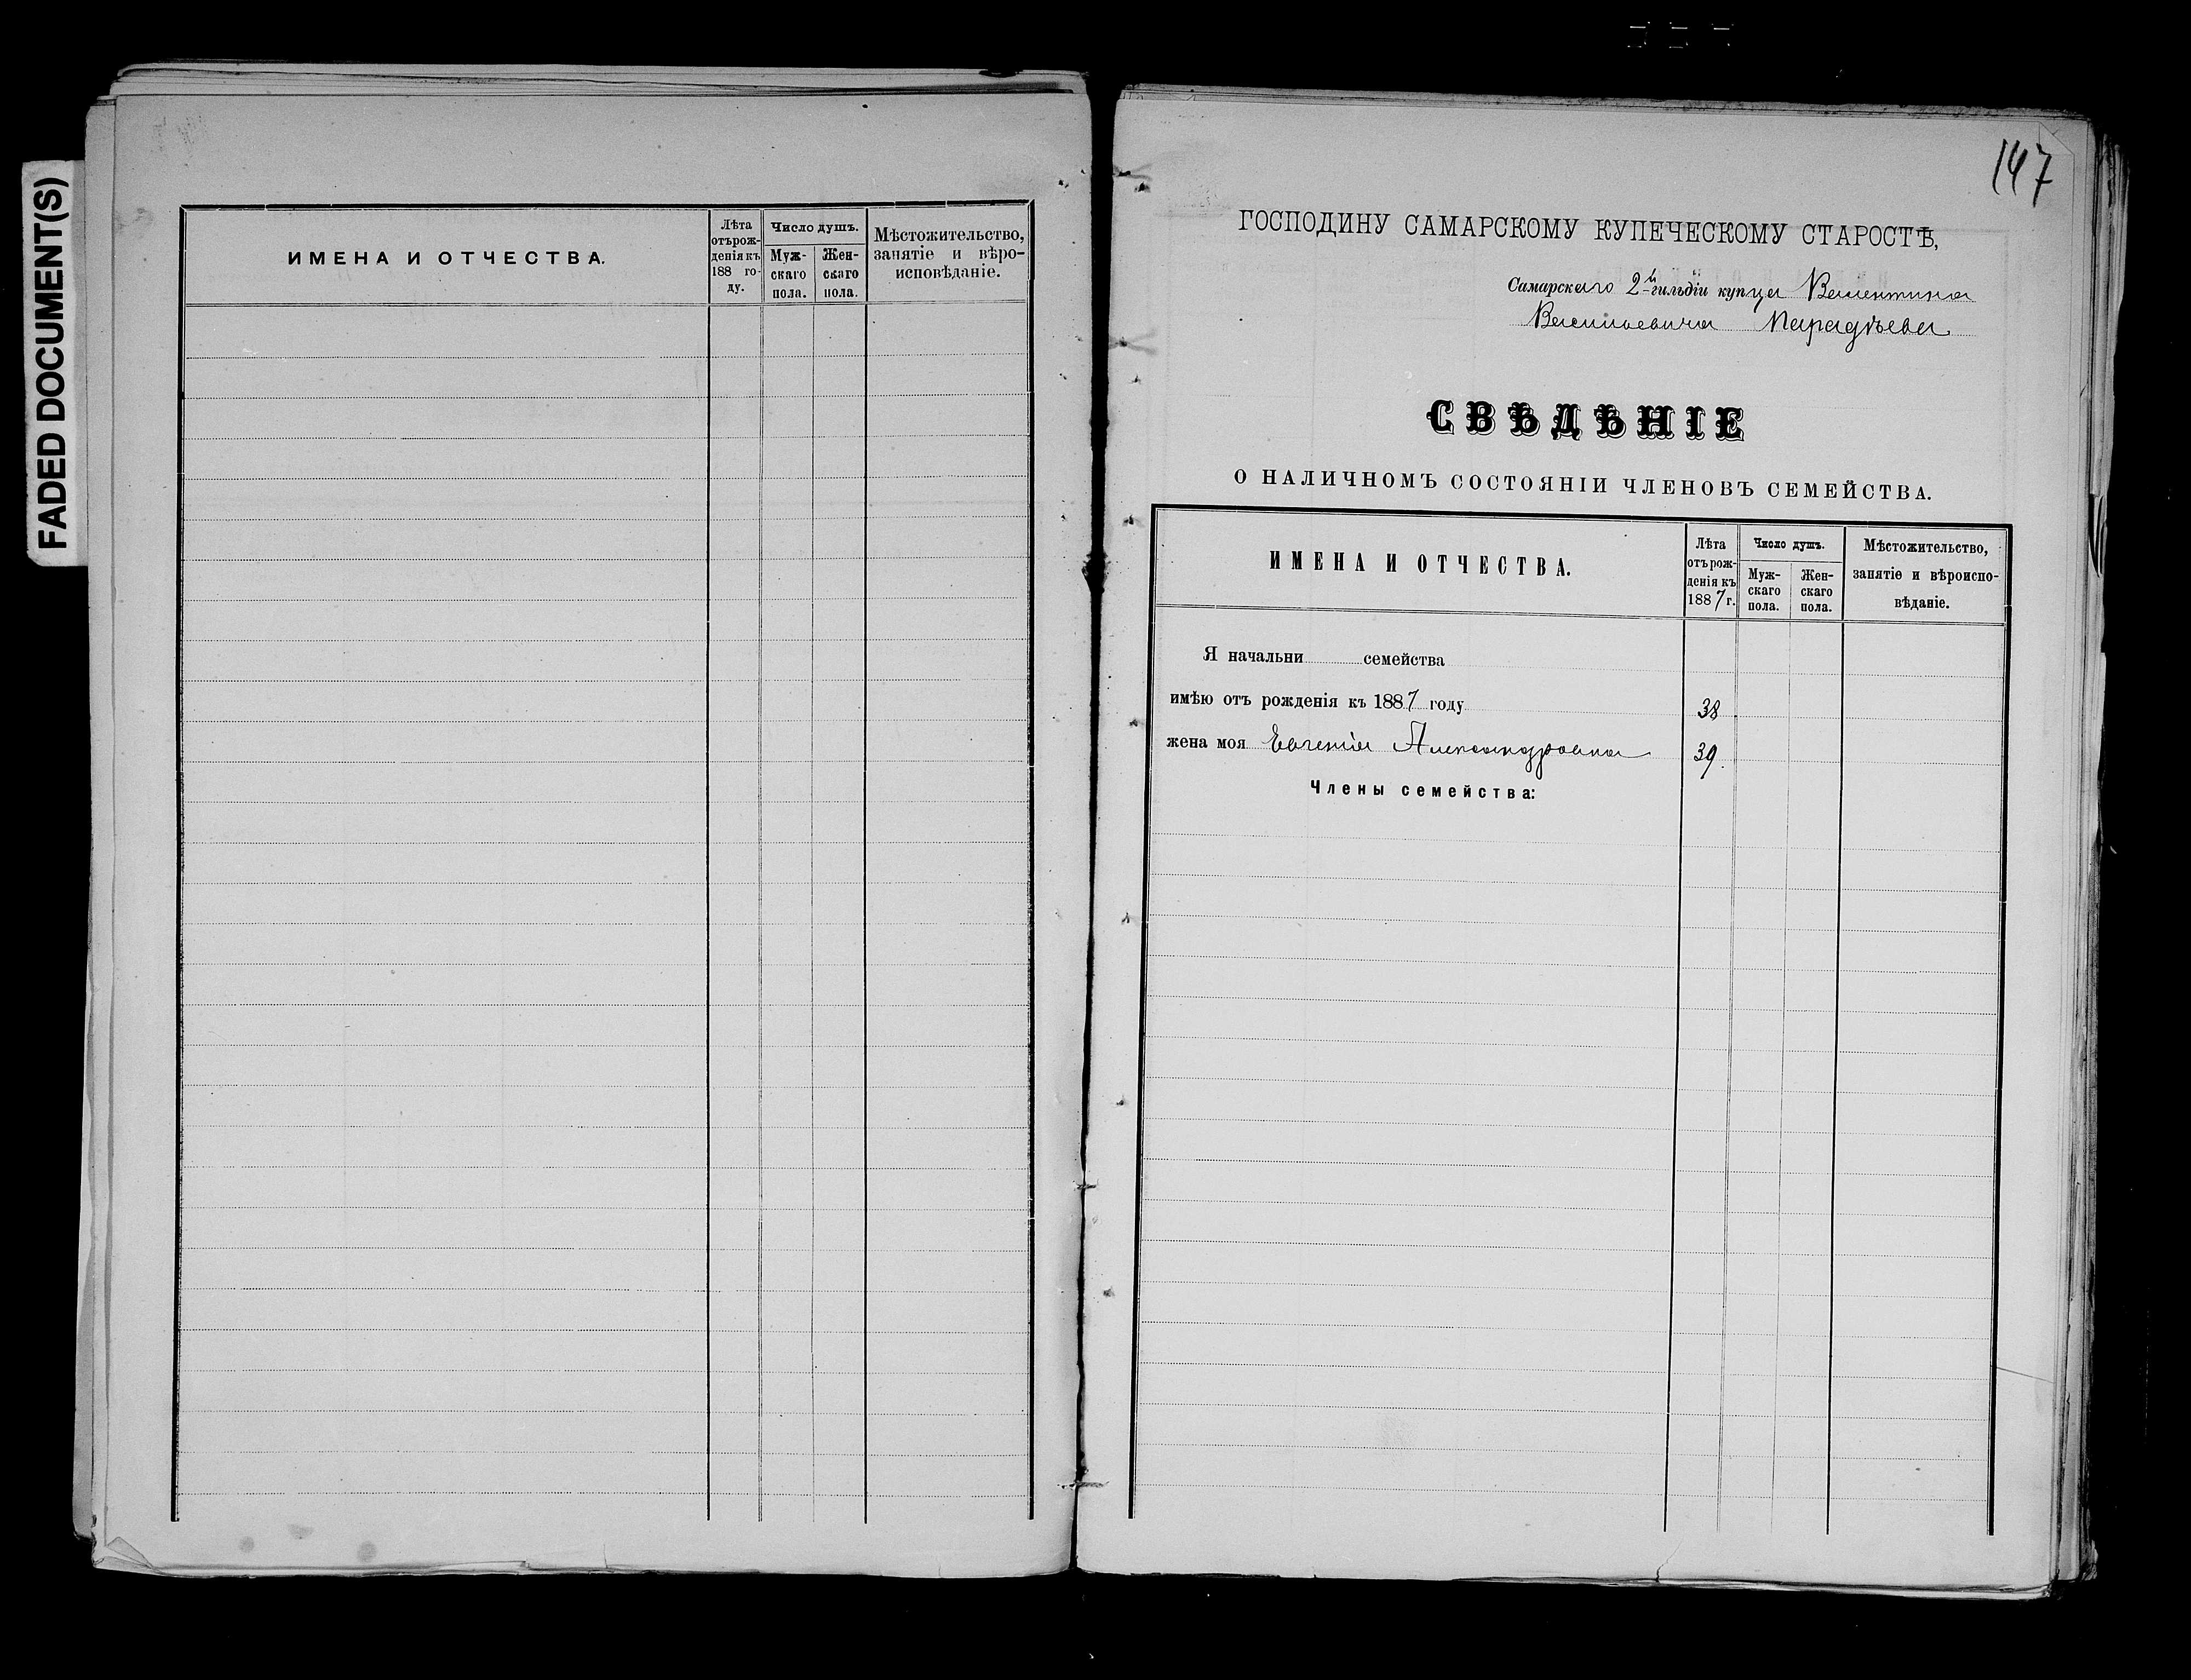 FADED DOCUMENT(S)
ИМЕНА И ОТЧЕСТВА.
Лѣта отъ рожденія къ 188 году.
Число душъ.
Мужскаго пола.
Женскаго пола.
Мѣстожительство, занятіе и вѣроисповѣданіе.
147
ГОСПОДИНУ САМАРСКОМУ КУПЕЧЕСКОМУ СТАРОСТѢ,
Самарскаго 2-й гильдіи купца Валентина
Васильевича
СВѢДѢНІЕ
О НАЛИЧНОМЪ СОСТОЯНІИ ЧЛЕНОВЪ СЕМЕЙСТВА.
ИМЕНА И ОТЧЕСТВА.
Лѣта отъ рожденія къ 1887 г.
Число душъ.
Мужскаго пола.
Женскаго пола.
Мѣстожительство, занятіе и вѣроисповѣданіе.
Я начальни семейства
имѣю отъ рожденія къ 1887 году 38
жена моя Евгенія Александровна 39.
Члены семейства: